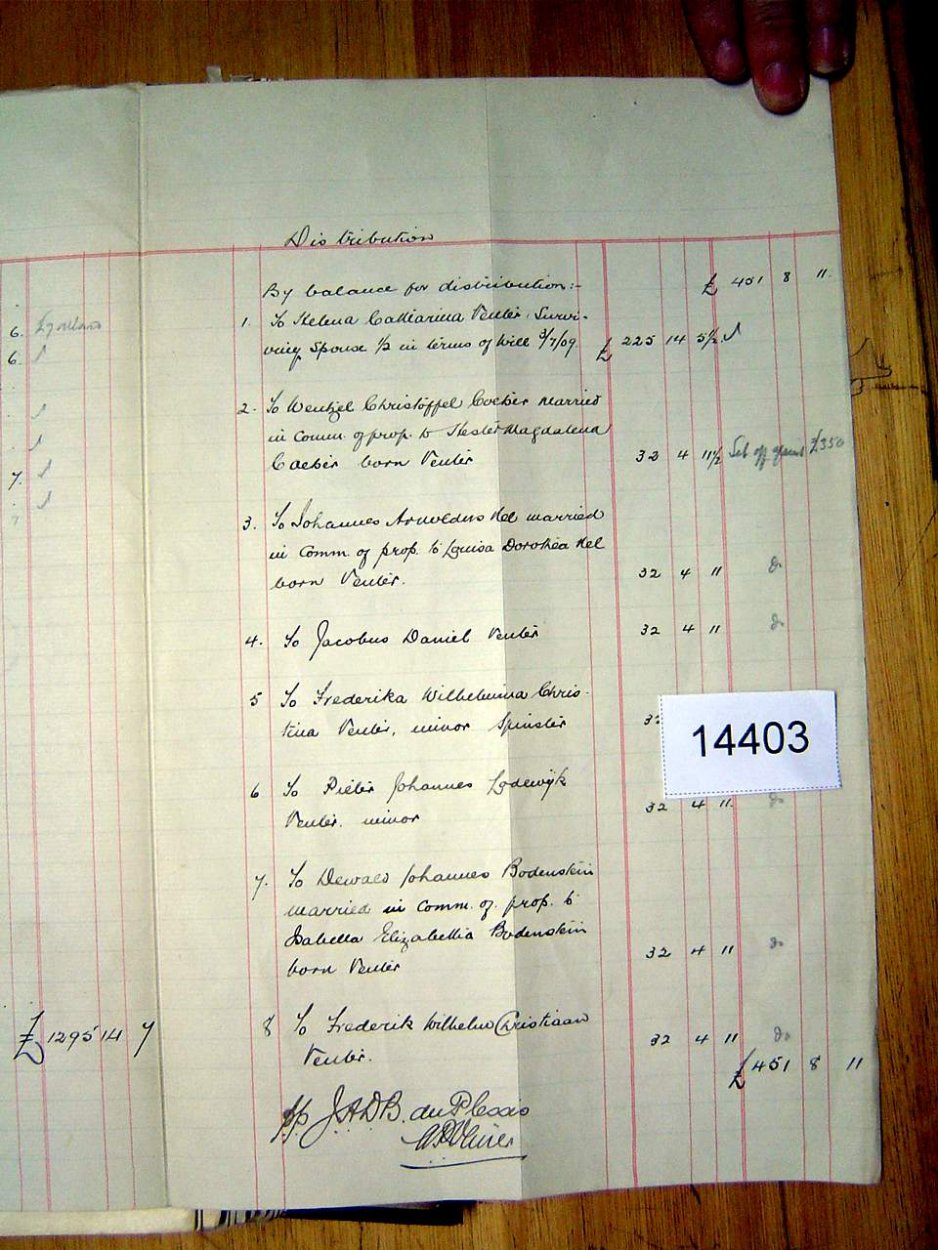 Distribution
By balance for distribution:- £ 451 8 11.
1. To Helena Catharina Venter, Survi-
ving Spouse 1/2 in terms of Will 3/7/09. £ 225 14 5 1/2
2. To Wentzel Christoffel Coetzer married
in comm. of prop. to Hester Magdalena
Coetzer born Venter 32 4 11 1/2 Set off £350
3. To Johannes Arnoldus Nel married
in Comm. of prop. to Louisa Dorothea Nel
born Venter. 32 4 11 do
4. To Jacobus Daniel Venter 32 4 11 do
5 To Frederika Wilhelmina Chris-
tina Venter, minor Spinster 32
14403
6 To Pieter Johannes Lodewijk
Venter. minor 32 4 11. do
7. To Dewald Johannes Bodenstein
married in comm. of. prop. to
Isabella Elizabetha Bodenstein
born Venter 32 4 11 do
8 To Frederik Wilhelm Christiaan
Venter. 32 4 11 do
£ 451 8 11
£ 1295 14 7
pp. J.A.D.B. du Plessis
6.
6.
7.
7